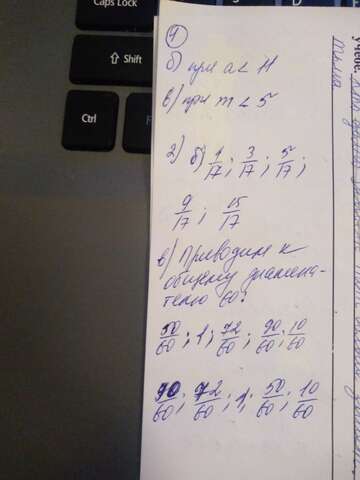 Caps Lock
⇧ Shift
Ctrl
1)
б) при a < 11
в) при m < 5
2) б) 1/17; 3/17; 5/17;
9/17; 15/17
в) Приводим к
общему знамена-
телю 60:
50/60; 1; 72/60; 90/60; 10/60
90/60; 72/60; 1; 50/60; 10/60